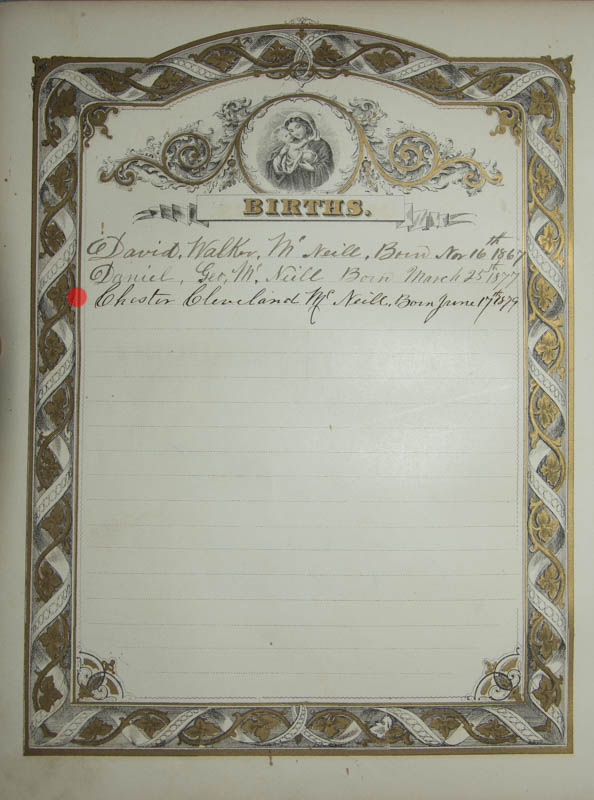 BIRTHS.
David, Walker, Mc Neill, Born Nov 16th 1867
Daniel, Geo, Mc Neill Born March 25th 1877
Chester Cleveland Mc Neill, Born June 17th 1879